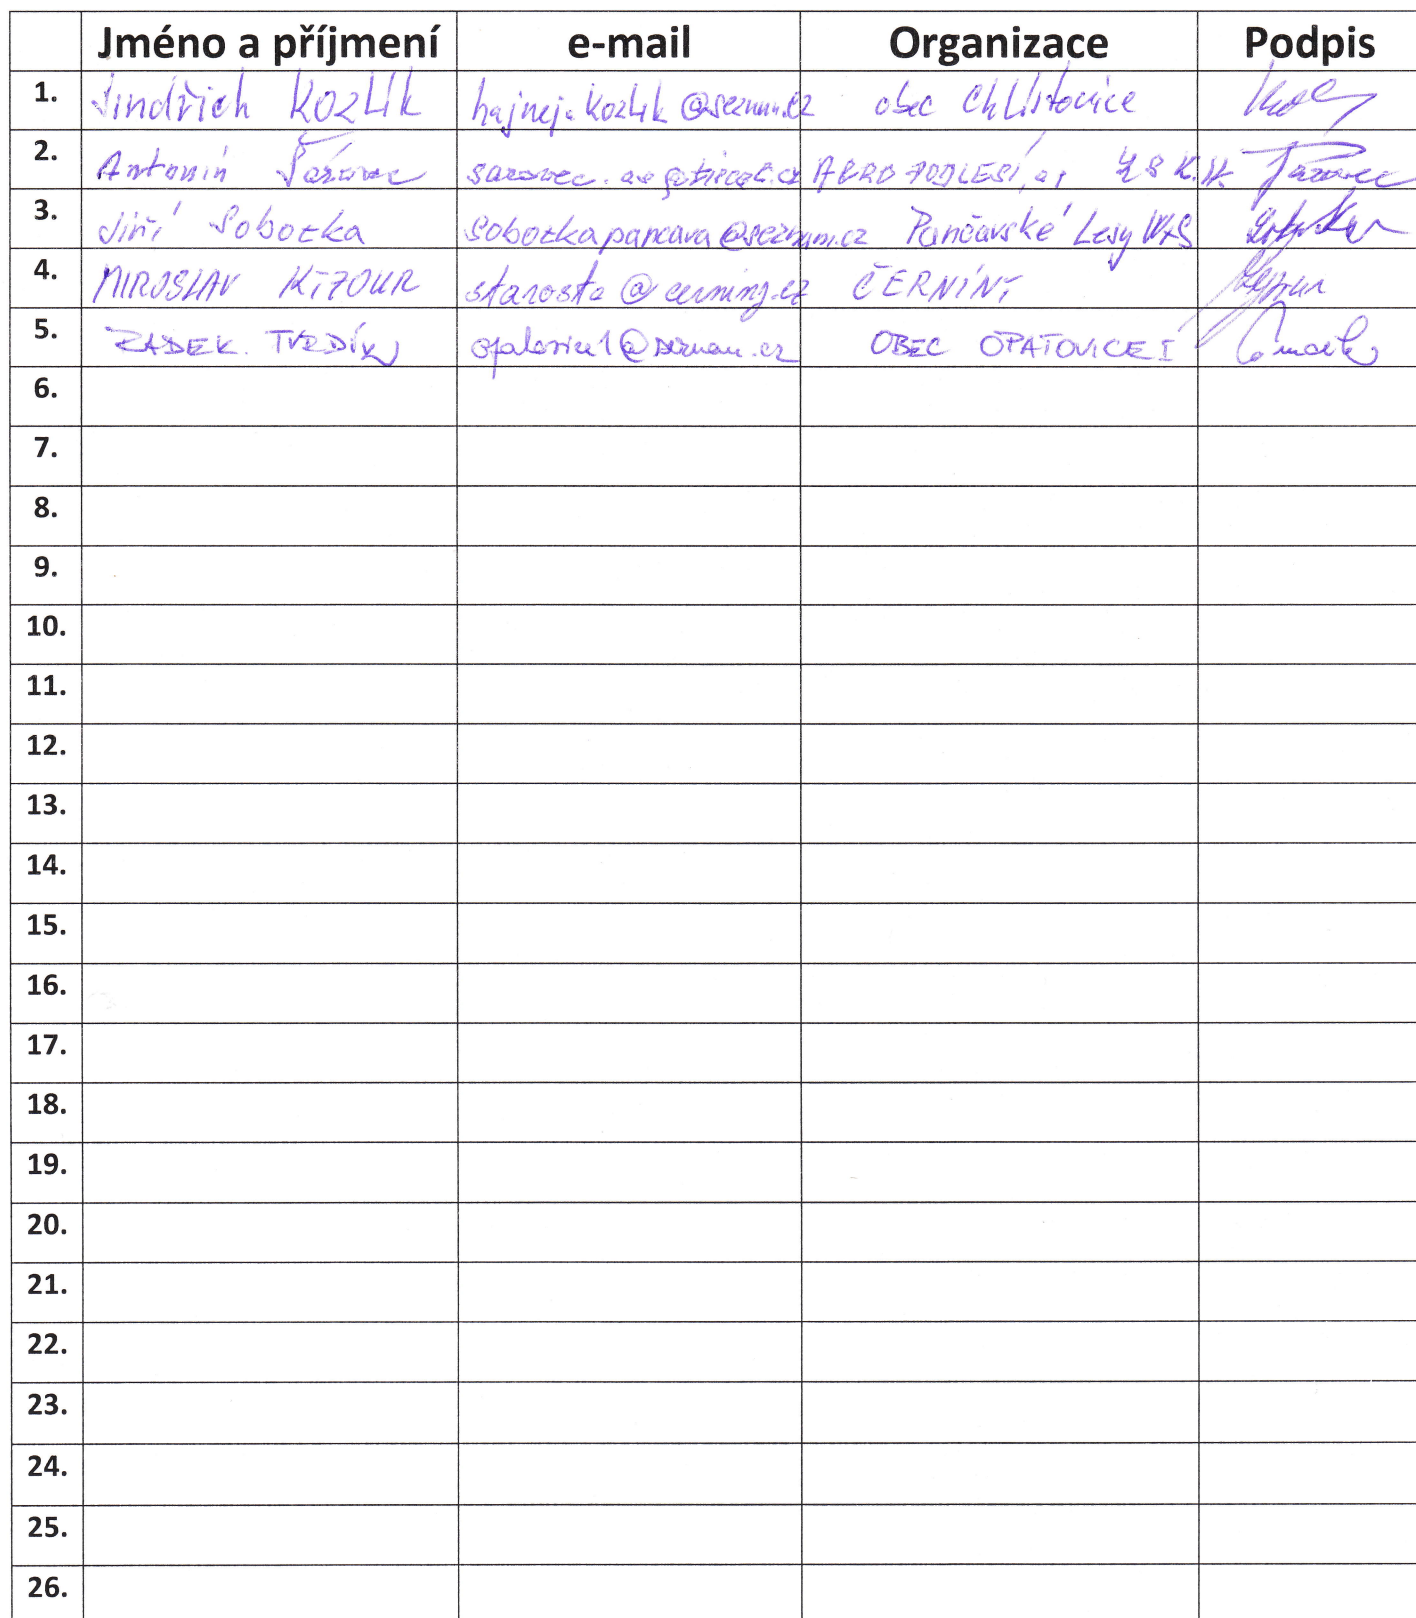 Jméno a příjmení e-mail Organizace Podpis
1. Jindřich Kozlík hajnej.kozlik@seznam.cz obec Chlístovice
2. Antonín Šázavec AGRO PODLESÍ, a.s
3. Jiří Sobotka sobotkapancava@seznam.cz Pančavské Lesy
4. MIROSLAV starosta@cerniny.cz ČERNÍNY
5. RADEK TVRDÍK opatovice1@seznam.cz OBEC OPATOVICE I
6.
7.
8.
9.
10.
11.
12.
13.
14.
15.
16.
17.
18.
19.
20.
21.
22.
23.
24.
25.
26.